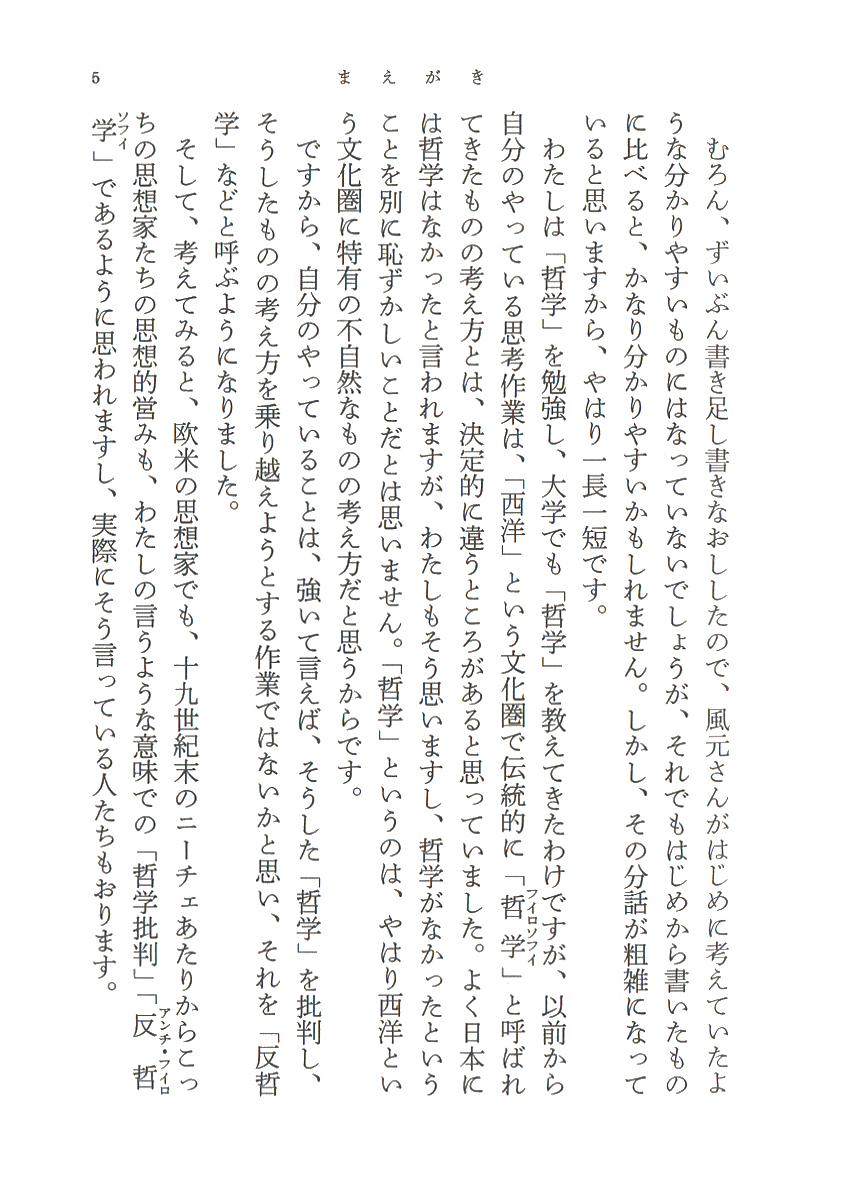 まえがき
5
むろん、ずいぶん書き足し書きなおししたので、風元さんがはじめに考えていたよ
うな分かりやすいものにはなっていないでしょうが、それでもはじめから書いたもの
に比べると、かなり分かりやすいかもしれません。しかし、その分話が粗雑になって
いると思いますから、やはり一長一短です。
わたしは「哲学」を勉強し、大学でも「哲学」を教えてきたわけですが、以前から
自分のやっている思考作業は、「西洋」という文化圏で伝統的に「哲学」と呼ばれ
フィロソフィ
てきたものの考え方とは、決定的に違うところがあると思っていました。よく日本に
は哲学はなかったと言われますが、わたしもそう思いますし、哲学がなかったという
ことを別に恥ずかしいことだとは思いません。「哲学」というのは、やはり西洋とい
う文化圏に特有の不自然なものの考え方だと思うからです。
ですから、自分のやっていることは、強いて言えば、そうした「哲学」を批判し、
そうしたものの考え方を乗り越えようとする作業ではないかと思い、それを「反哲
学」などと呼ぶようになりました。
そして、考えてみると、欧米の思想家でも、十九世紀末のニーチェあたりからこっ
ちの思想家たちの思想的営みも、わたしの言うような意味での「哲学批判」「反哲
アンチ・フィロ
学」であるように思われますし、実際にそう言っている人たちもおります。
ソフィ